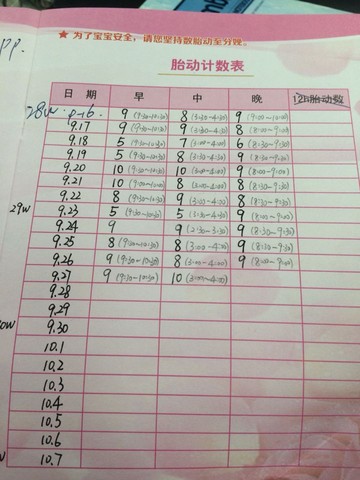 ★ 为了宝宝安全，请您坚持数胎动至分娩。
胎动计数表
日 期 早 中 晚 12h胎动数
28w 9.16 9 (9:30~10:30) 8 (3:30~4:30) 9 (9:00~10:00)
9.17 9 (9:30~10:30) 9 (3:30~4:30) 8 (8:00~9:00)
9.18 5 (9:30~10:30) 7 (3:00~4:00) 6 (8:30~9:30)
9.19 5 (9:30~10:30) 8 (3:30~4:30) 9 (8:30~9:30)
9.20 10 (9:30~10:30) 10 (3:00~4:00) 9 (8:00~9:00)
9.21 10 (9:00~10:00) 8 (3:00~4:00) 8 (8:30~9:30)
9.22 8 (9:30~10:30) 9 (3:00~4:00) 8 (8:30~9:30)
29w 9.23 5 (9:30~10:30) 5 (3:30~4:30) 9 (8:00~9:00)
9.24 9 9 (2:30~3:30) 9 (8:30~9:30)
9.25 8 (9:00~10:30) 8 (3:00~4:00) 9 (8:30~9:30)
9.26 9 (9:30~10:30) 8 (3:00~4:00) 9 (8:00~9:00)
9.27 9 (9:30~10:30) 10 (3:00~4:00)
9.28
9.29
9.30
10.1
10.2
10.3
10.4
10.5
10.6
10.7